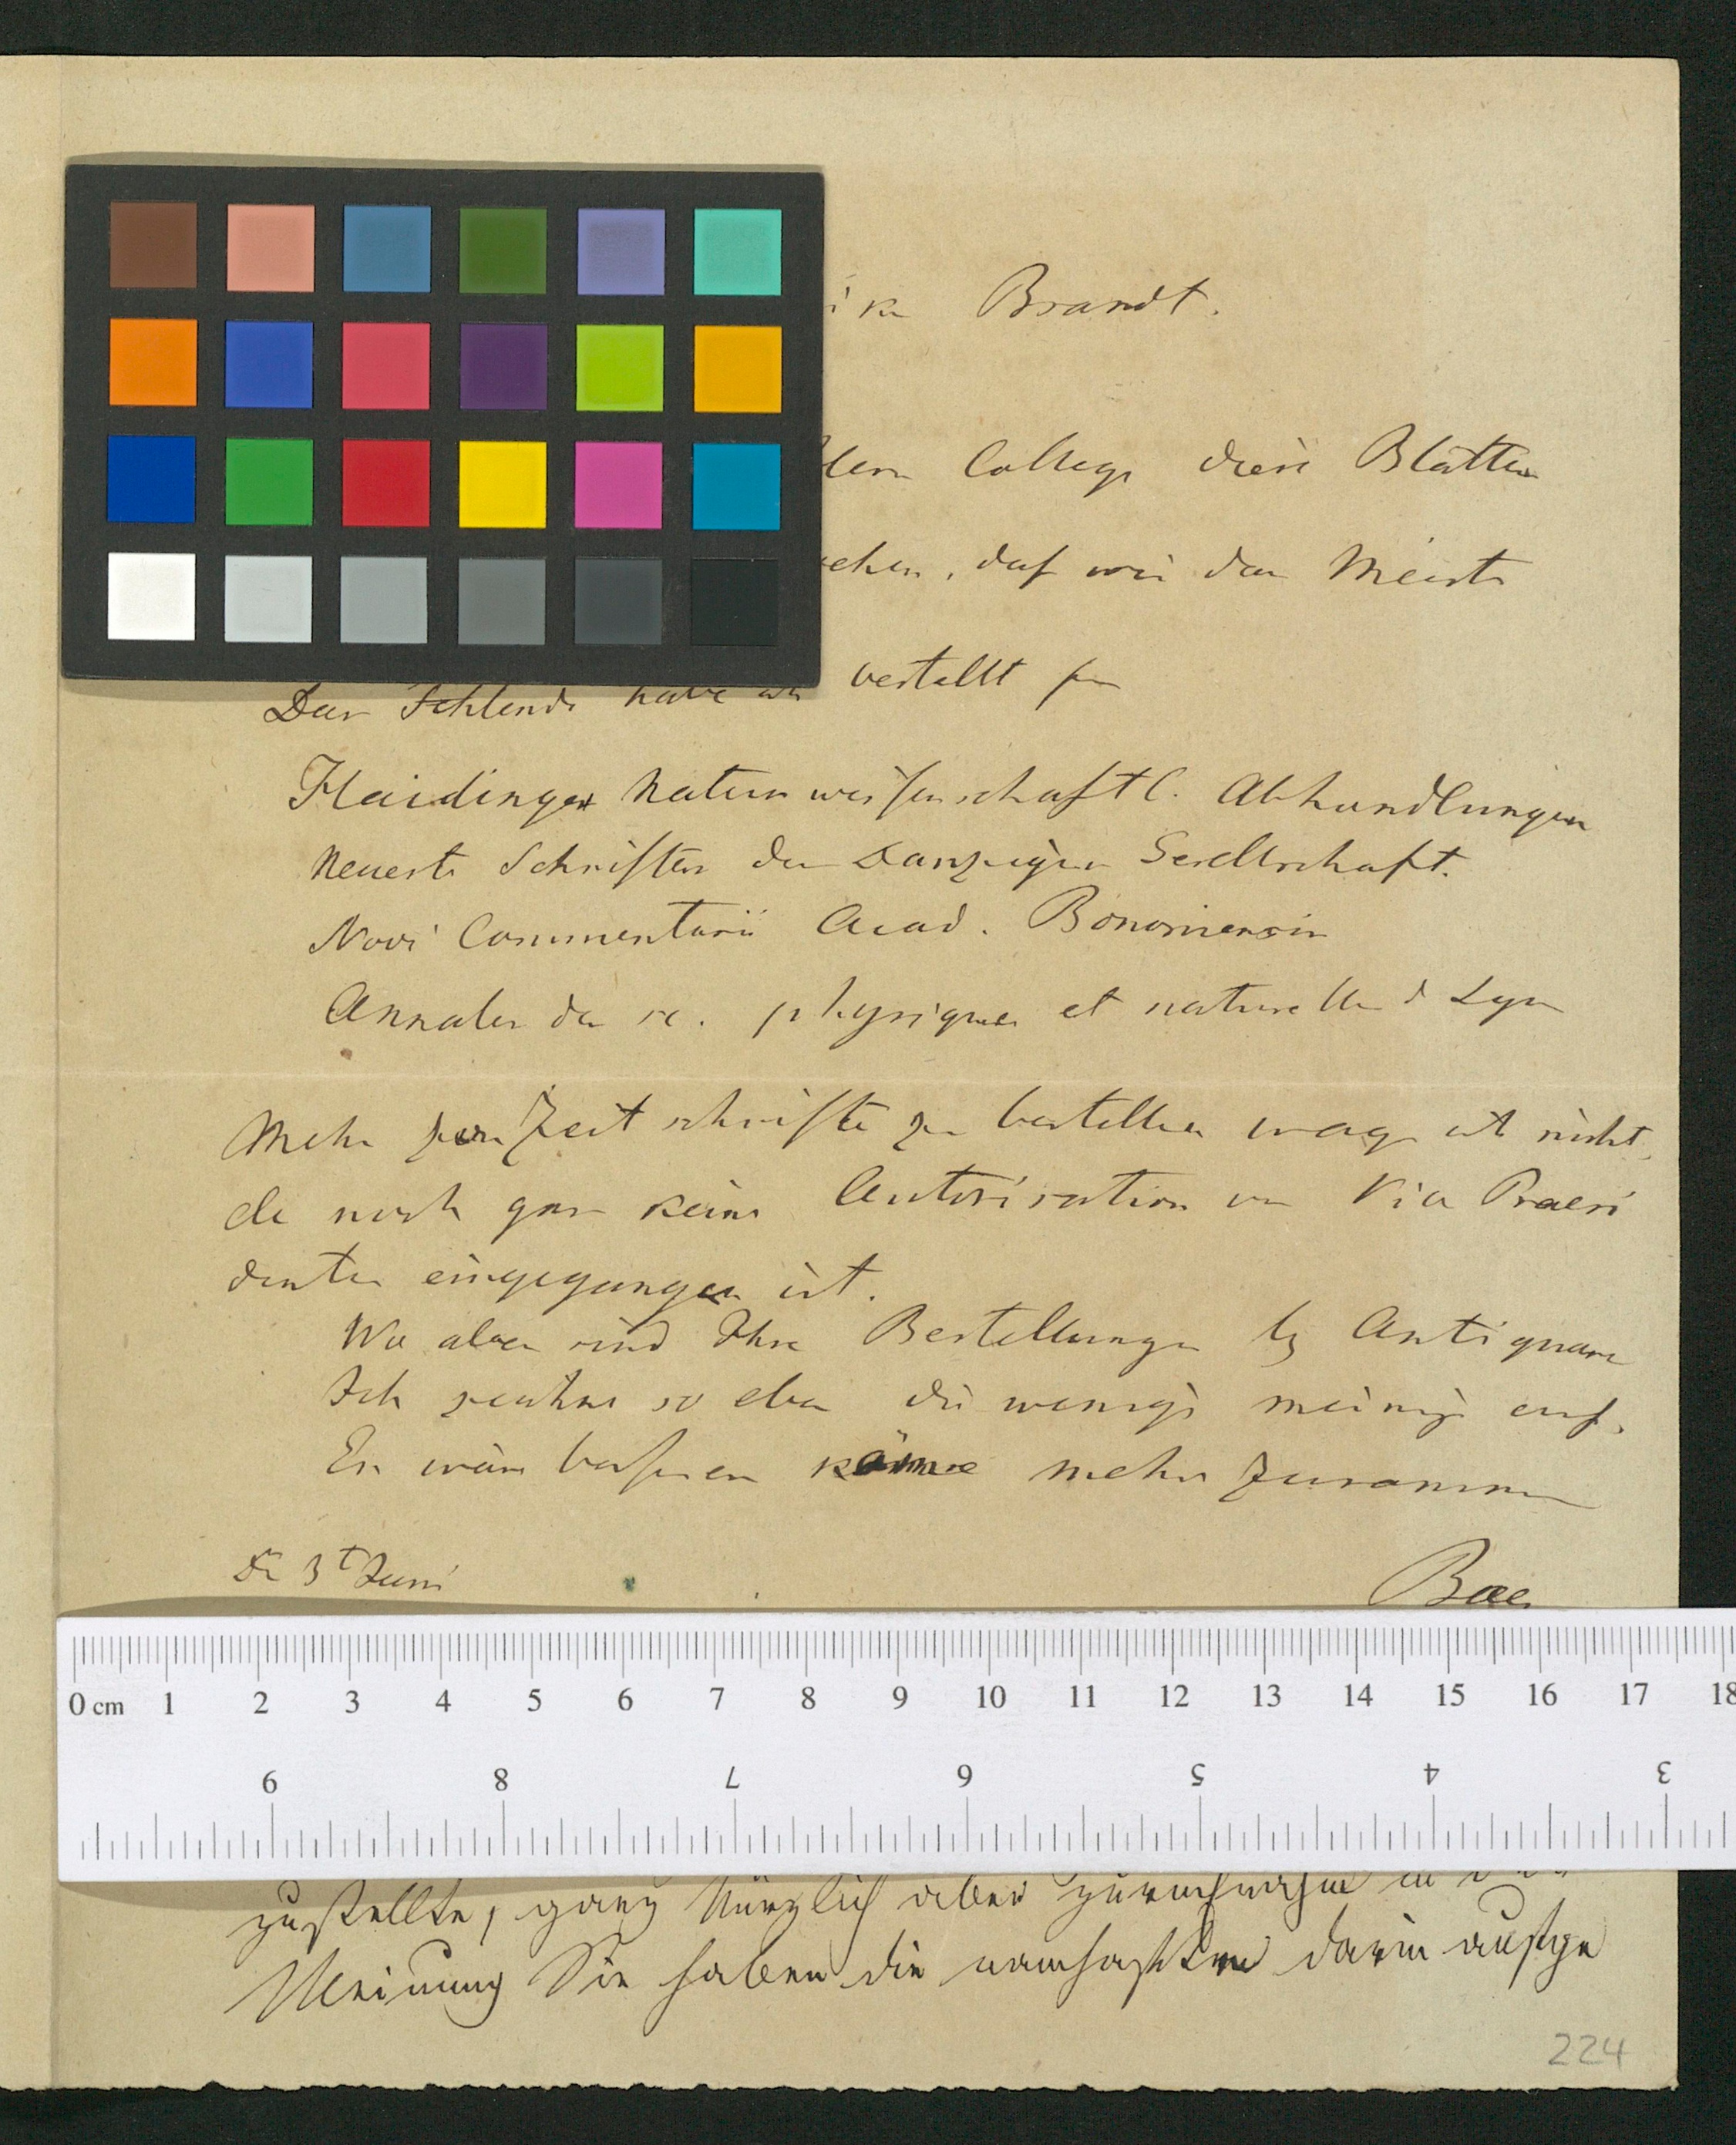 Brandt.
College diese Blätter
, daß wir das Meiste
Das Fehlende habe ich bestellt
Haidinger Naturwissenschaftl. Abhandlungen
Neueste Schriften der Danziger Gesellschaft.
Novi Commentarii Acad. Bononiensis
Annales des sc. physiques et naturelles d Lyon
Mehr Zeitschriften zu bestellen wage ich nicht,
da noch gar keine Autorisation vom Vice Praesi
denten eingegangen ist.
Wo aber sind Ihre Bestellungen Antiquare
Ich so eben die wenige meinige auf.
Es wäre besser es käme mehr zusammen
3t Juni
Baer
0 cm 1 2 3 4 5 6 7 8 9 10 11 12 13 14 15 16 17 18
9 8 7 6 5 4 3
zustellte, ganz kürzlich aber
Meinung Sie haben die darin aufge
224